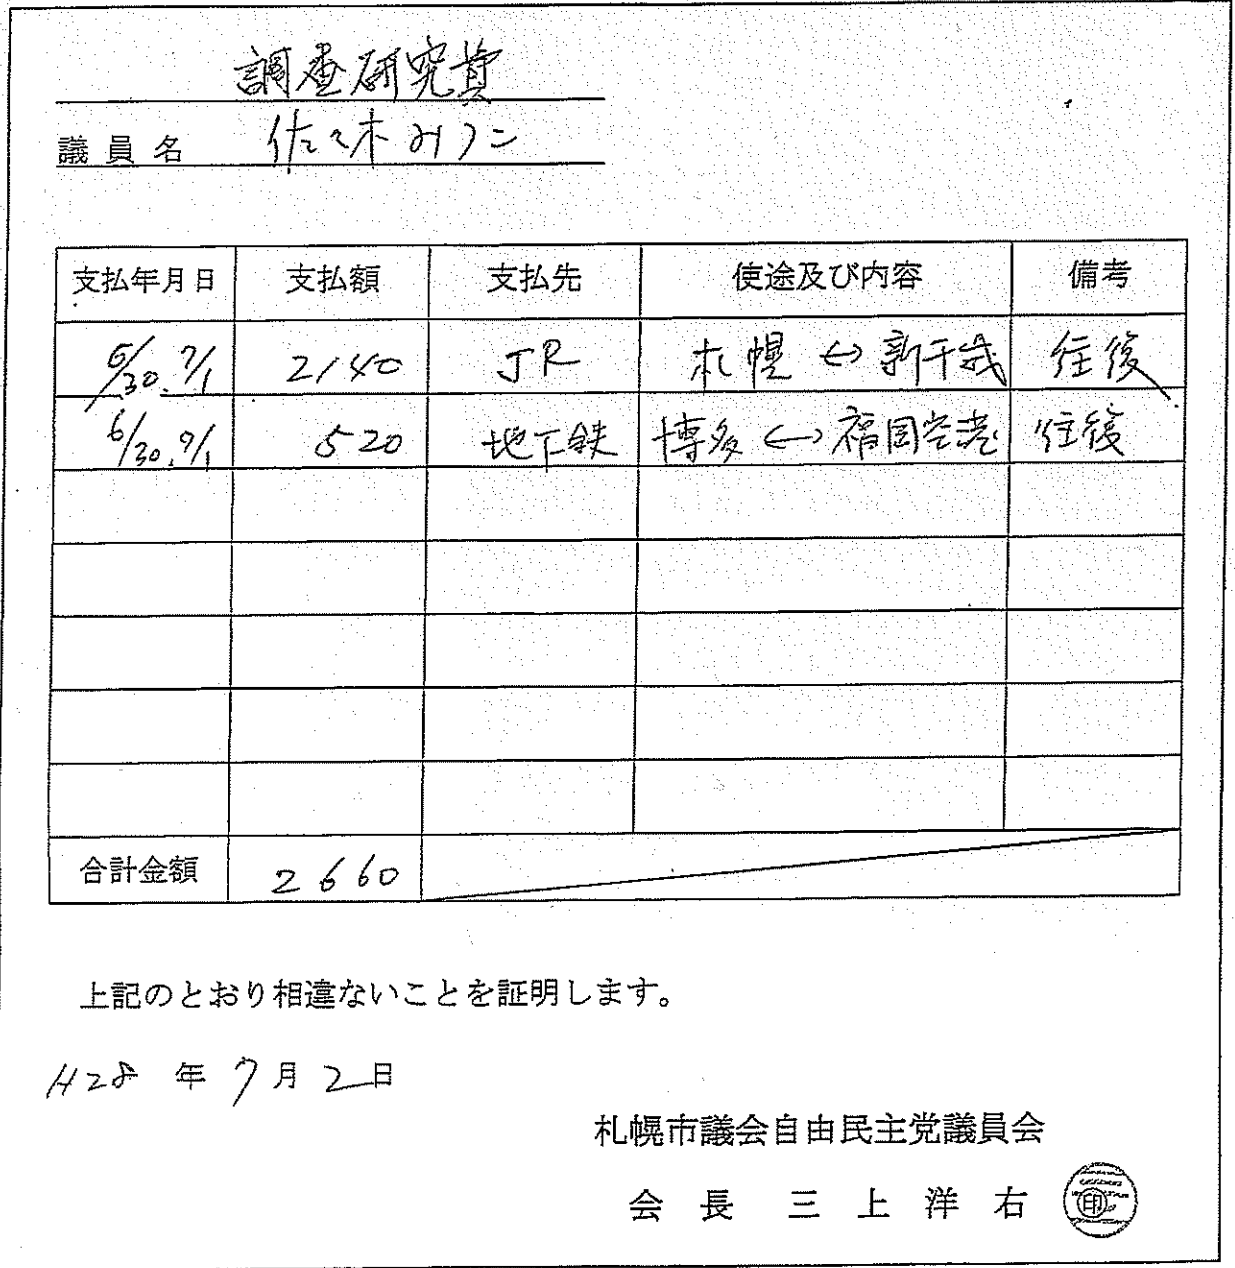 調査研究費
議員名 佐々木みつこ
支払年月日 支払額 支払先 使途及び内容 備考
6/30.7/1 2140 JR 札幌↔新千歳 往復
6/30.7/1 520 地下鉄 博多↔福岡空港 往復
合計金額 2660
上記のとおり相違ないことを証明します。
H28年7月2日
札幌市議会自由民主党議員会
会長 三上洋右 印